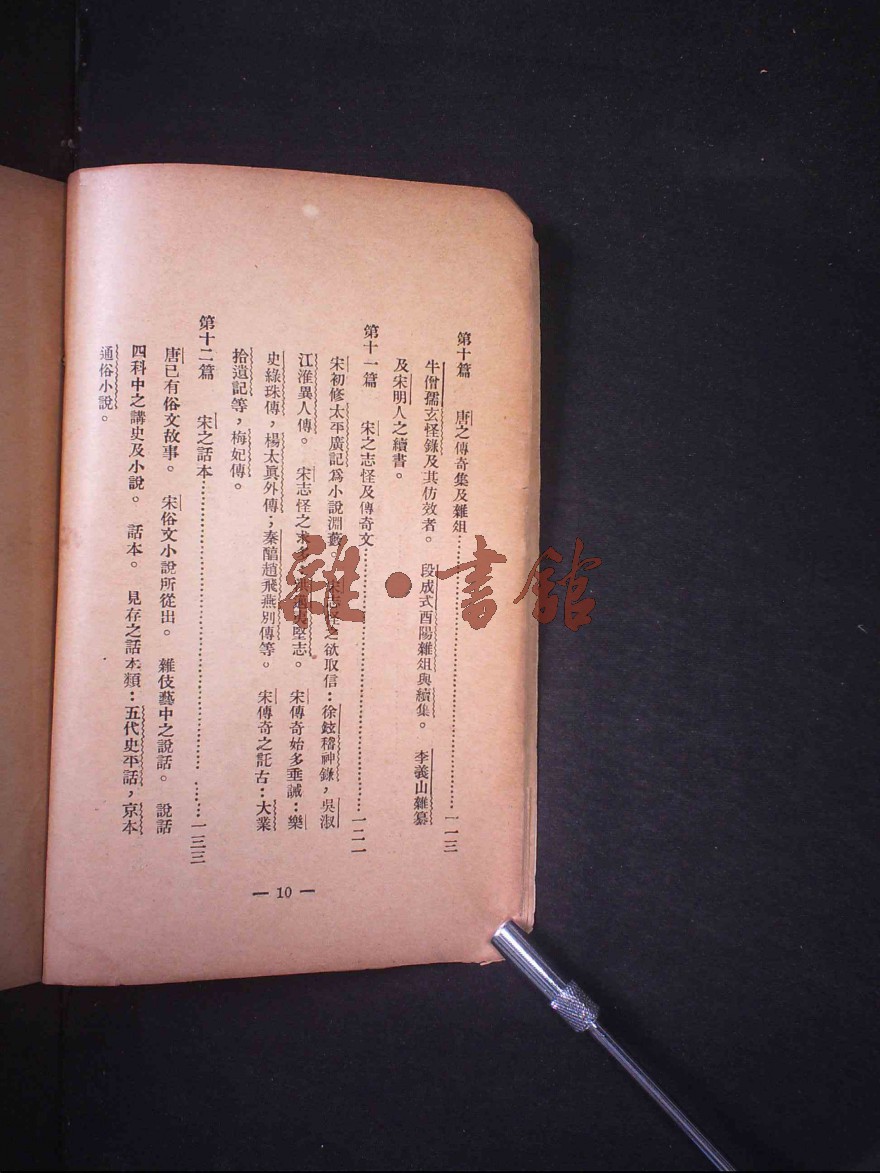 第十篇　唐之傳奇集及雜俎……一一三
牛僧孺玄怪錄及其仿效者。　段成式酉陽雜俎與續集。　李義山雜纂
及宋明人之續書。
第十一篇　宋之志怪及傳奇文……一二一
宋初修太平廣記爲小說淵藪。　宋志怪之欲取信：徐鉉稽神錄，吳淑
江淮異人傳。　宋志怪之求　夷堅志。　宋傳奇始多垂誡：樂
史綠珠傳，楊太眞外傳；秦醇趙飛燕別傳等。　宋傳奇之託古：大業
拾遺記等，梅妃傳。
第十二篇　宋之話本……一三三
唐已有俗文故事。　宋俗文小說所從出。　雜伎藝中之說話。　說話
四科中之講史及小說。　話本。　見存之話本類：五代史平話，京本
通俗小說。
— 10 —
雜·書館